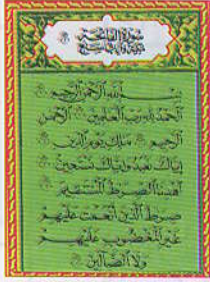 سورة الفاتحة
بسم الله الرحمن الرحيم
الحمد لله رب العلمين الرحمن
الرحيم ملك يوم الدين
إياك نعبد وإياك نستعين
اهدنا الصرط المستقيم
صرط الذين أنعمت عليهم
غير المغضوب عليهم
ولا الضالين